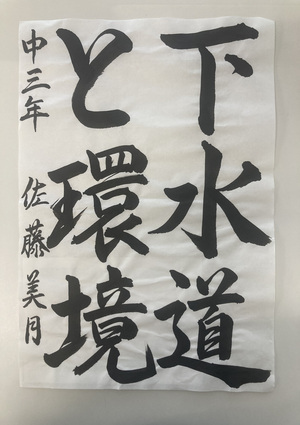 下水道
と環境
中三年 佐藤美月